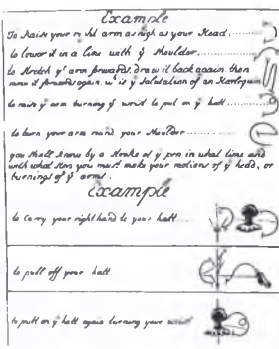 Example
To Raise your right arm as high as your Head
to lower it in a line with yͤ Shoulder
to stretch yͬ arm forwards, draw it back again, then
move it forwards again, wͨ is yͤ Salutation of an Harlequin
to raise yͬ arm turning yͤ wrist to put on yͤ hatt
to turn your arm round your shoulder
you shall know by a stroke of yͤ pen in what time and
with what step you must make your motions of yͤ head, or
turnings of yͤ arms.
Example
to carry your right hand to your hatt
to pull off your hatt
to putt on yͤ hatt again turning your wrist